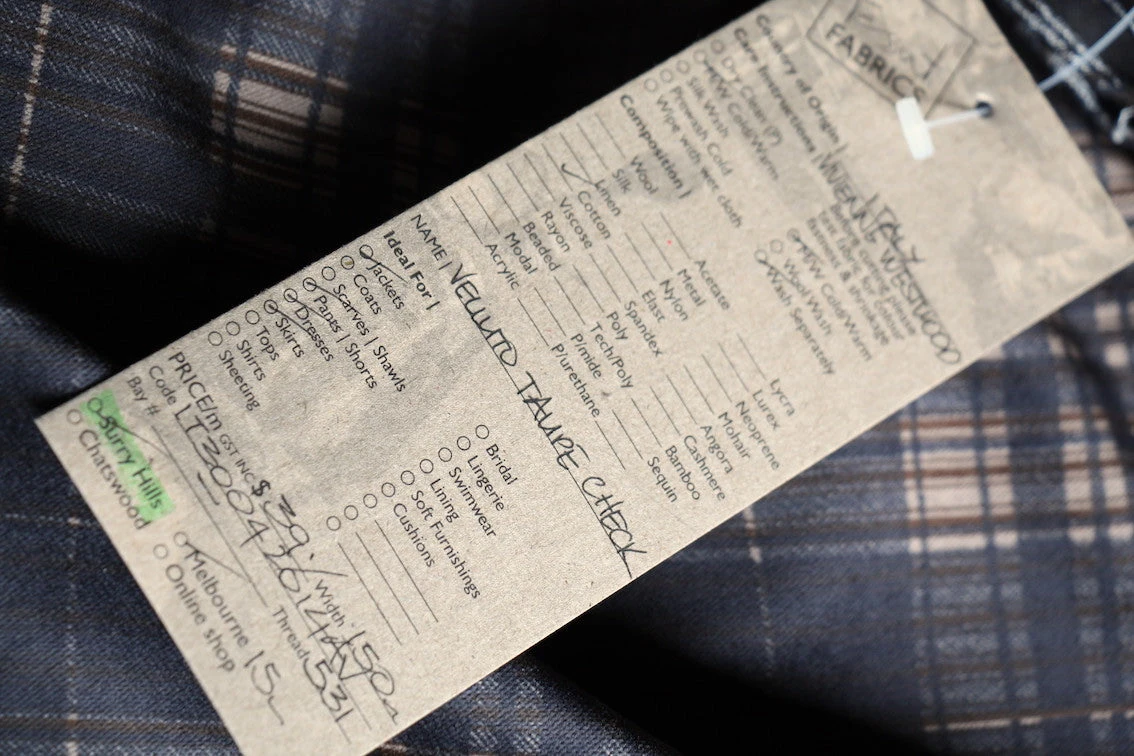 FABRICS
Country of Origin | ITALY
VIVIENNE WESTWOOD
Care Instructions |
Before cutting please
test fabric for colour
fastness & shrinkage
Dry Clean (P)
HW Cold/Warm
Silk Wash
Prewash Cold
Wipe with wet cloth
MW Cold/Warm
Wool Wash
Wash Separately
Composition |
Wool
Silk
Linen
✓ Cotton
Viscose
Rayon
Beaded
Modal
Acrylic
Acetate
Metal
Nylon
Elast
Spandex
Poly
Tech/Poly
P/mide
P/urethane
Lycra
Lurex
Neoprene
Mohair
Angora
Cashmere
Bamboo
Sequin
NAME | VELLUTO TAUPE CHECK
Ideal For |
Jackets
Coats
Scarves | Shawls
Pants | Shorts
Dresses
Skirts
Tops
Shirts
Sheeting
Bridal
Lingerie
Swimwear
Lining
Soft Furnishings
Cushions
PRICE/m GST INC $ 39./ Width 150
Code LT30042014AV Thread 531
Bay #
Surry Hills
Chatswood
Melbourne 15
Online shop